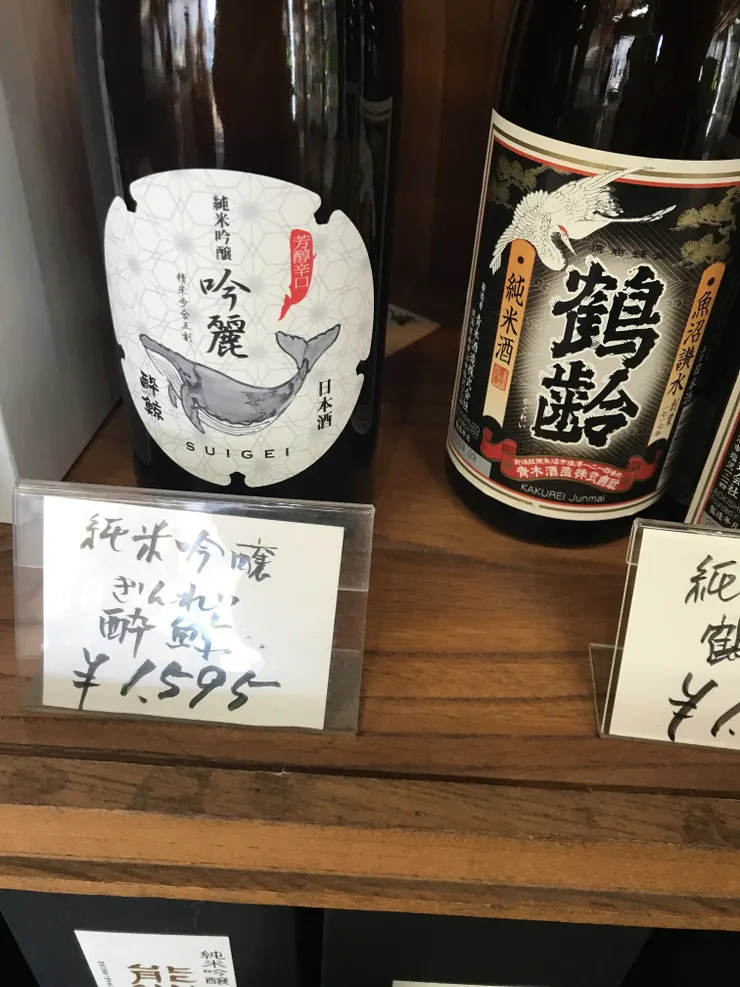 純米吟醸
芳醇辛口
吟麗
精米歩合五割
酔鯨
日本酒
SUIGEI
純米酒
鶴齢
かくれい
魚沼讃水
青木酒造株式會社
KAKUREI Junmai
純米吟醸
ぎんれい
酔鯨
¥1,595
純
鶴
¥1,
純米吟醸